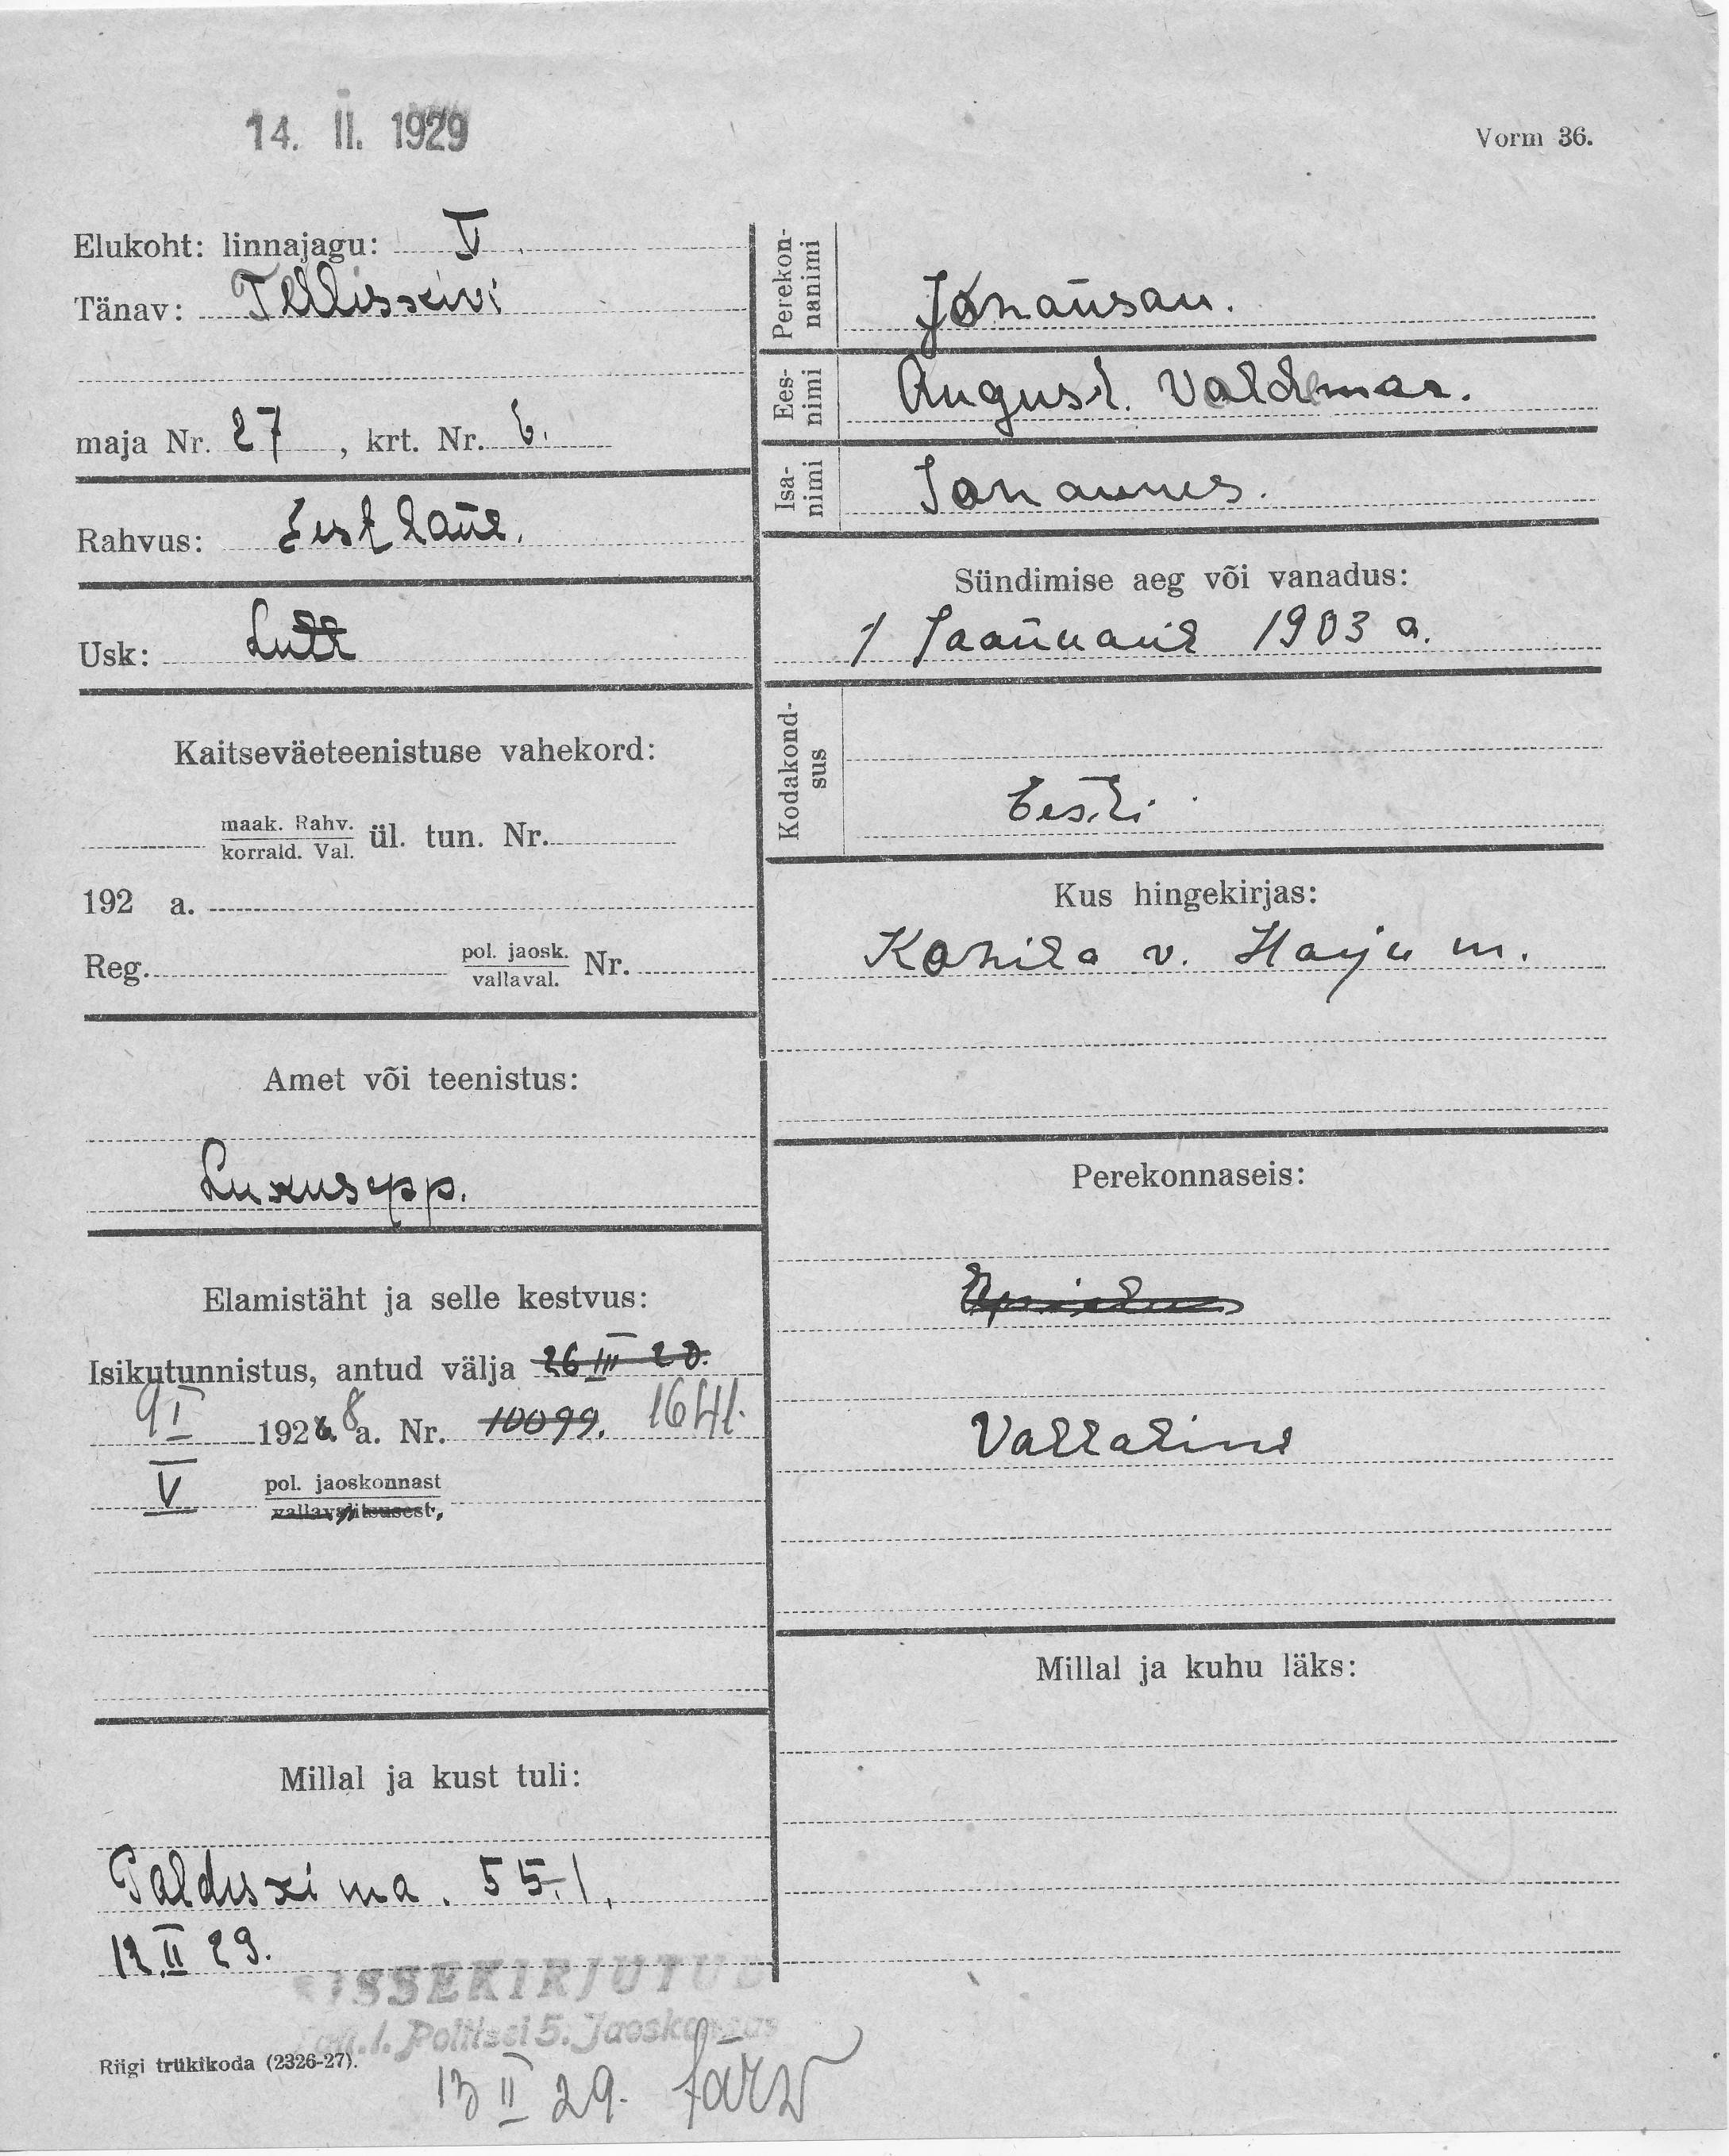 14. II. 1929
Vorm 36.
Elukoht: linnajagu: V
Tänav: Telliskivi
maja Nr. 27, krt. Nr. 6.
Rahvus: Eestlane.
Usk: Lutt
Kaitseväeteenistuse vahekord:
maak. Rahv.
korrald. Val. ül. tun. Nr.
192 a.
Reg. pol. jaosk.
vallaval. Nr.
Amet või teenistus:
Lukusepp.
Elamistäht ja selle kestvus:
Isikutunnistus, antud välja 26 III 20.
9 I 1926. 8 a. Nr. 10099. 1641.
V pol. jaoskonnast
vallavalitsusest,
Millal ja kust tuli:
Paldiski ma. 55-1.
12 II 29.
SISSEKIRJUTUD
Politsei 5. Jaoskonnas
Riigi trükikoda (2326-27).
13 II 29.
Perekon-
nanimi
Johanson.
Ees-
nimi
August. Valdemar.
Isa-
nimi
Johannes.
Sündimise aeg või vanadus:
1 Jaanuaril 1903 a.
Kodakond-
sus
Eesti.
Kus hingekirjas:
Kohila v. Harju m.
Perekonnaseis:
Vallaline
Millal ja kuhu läks: